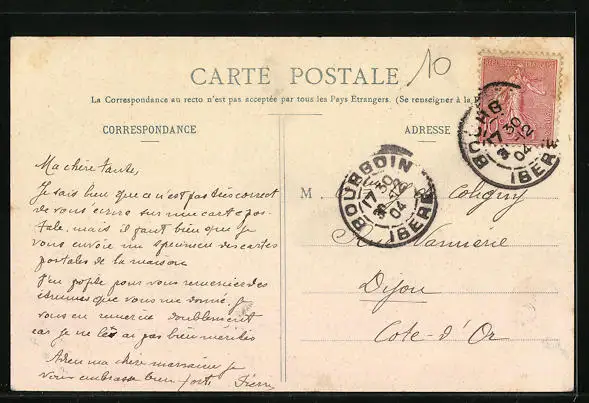 10
CARTE POSTALE
La Correspondance au recto n'est pas acceptée par tous les Pays Etrangers. (Se renseigner à la
CORRESPONDANCE
ADRESSE
Ma chère tante,
Je sais bien que ce n'est pas très correct
de vous écrire sur une carte pos-
tale, mais il faut bien que je
vous envoie un spécimen des cartes
postales de la maison
J'en profite pour vous remercier des
étrennes que vous me donné. Je
vous en remercie doublement
car je ne les ai pas bien mérités
Adieu ma chère marraine je
vous embrasse bien fort. Pierre
M
Coligny
Rue Vannerie
Dijon
Côte-d'Or
BOURBOIN
17 30
04
ISERE
17 30
04
ISERE